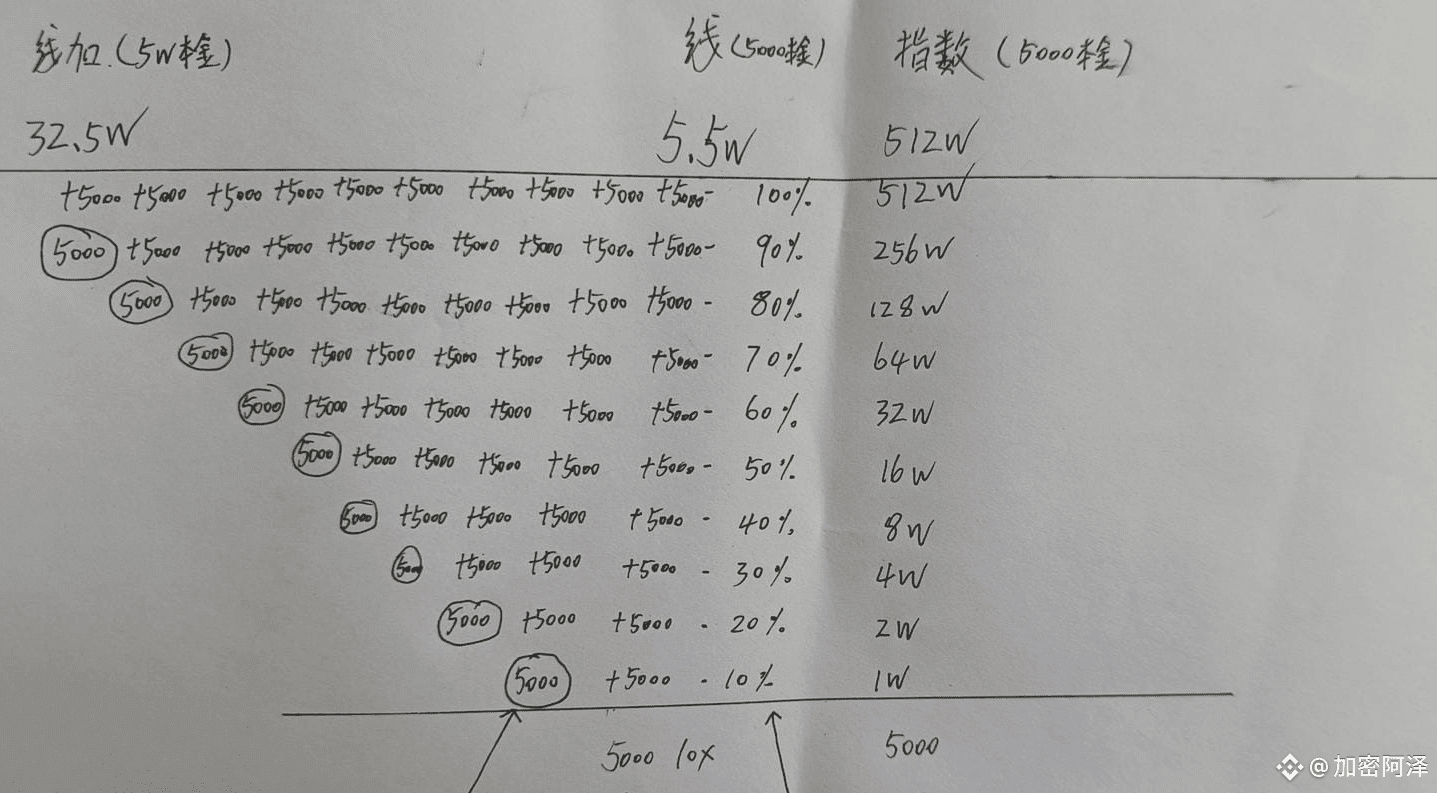 线加.(5W本金) 线(5000本金) 指数(5000本金)
32.5W 5.5W 512W
+5000 +5000 +5000 +5000 +5000 +5000 +5000 +5000 +5000 +5000- 100% 512W
5000 +5000 +5000 +5000 +5000 +5000 +5000 +5000 +5000 +5000- 90% 256W
5000 +5000 +5000 +5000 +5000 +5000 +5000 +5000 +5000 - 80% 128W
5000 +5000 +5000 +5000 +5000 +5000 +5000 +5000- 70% 64W
5000 +5000 +5000 +5000 +5000 +5000 +5000- 60% 32W
5000 +5000 +5000 +5000 +5000 +5000- 50% 16W
5000 +5000 +5000 +5000 +5000 - 40% 8W
5000 +5000 +5000 +5000 - 30% 4W
5000 +5000 +5000 - 20% 2W
5000 +5000 - 10% 1W
5000 10X 5000
@加密阿泽